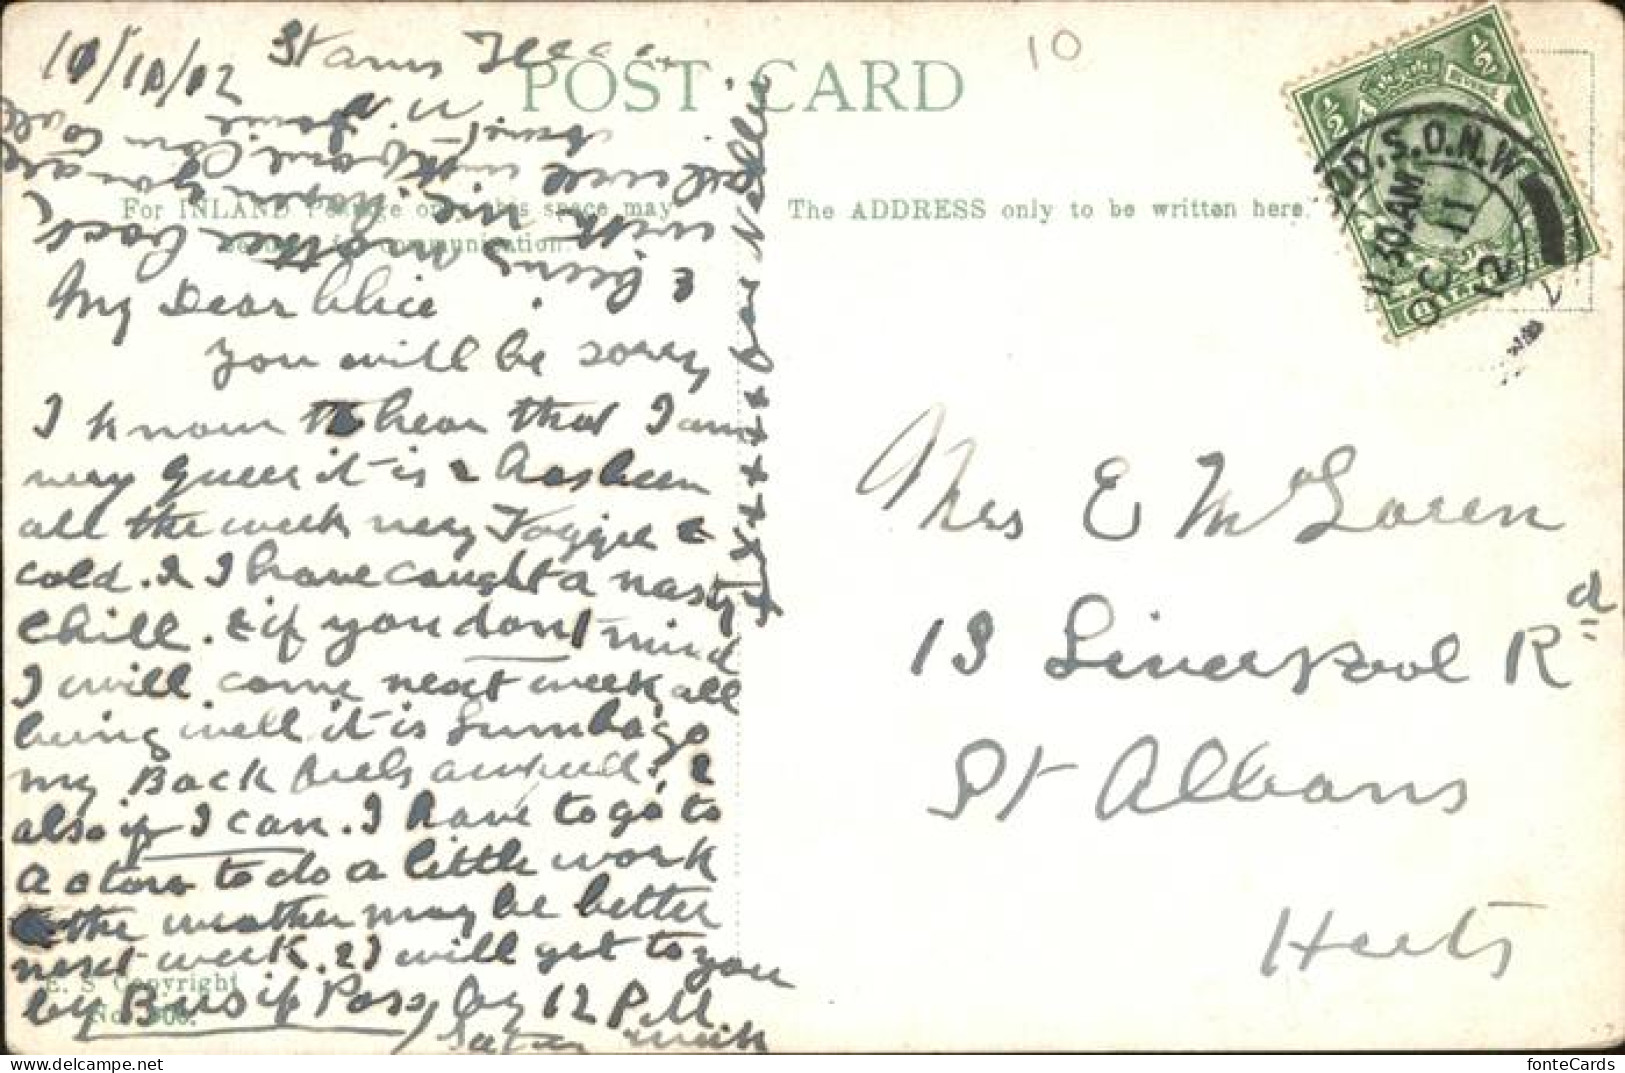 10/10/12
10
POST CARD
For INLAND Postage only this space may
communication.
The ADDRESS only to be written here.
My Dear Alice
you will be sorry
I know to hear that I am
very queer it is & has been
all the week very Foggie &
cold. & I have caught a nasty
chill. & if you dont mind
I will come next week, all
being well it is Lumbago
my Back feels awful, &
also if I can. I have to go to
a store to do a little work
the weather may be better
next week. & I will get to you
by Bus if Poss, by 12 P.M.
with
E. S. Copyright
No.
11.30 AM
OC 11
12
Mrs E McLaren
13 Liverpool Rd
St Albans
Herts
fonteCards